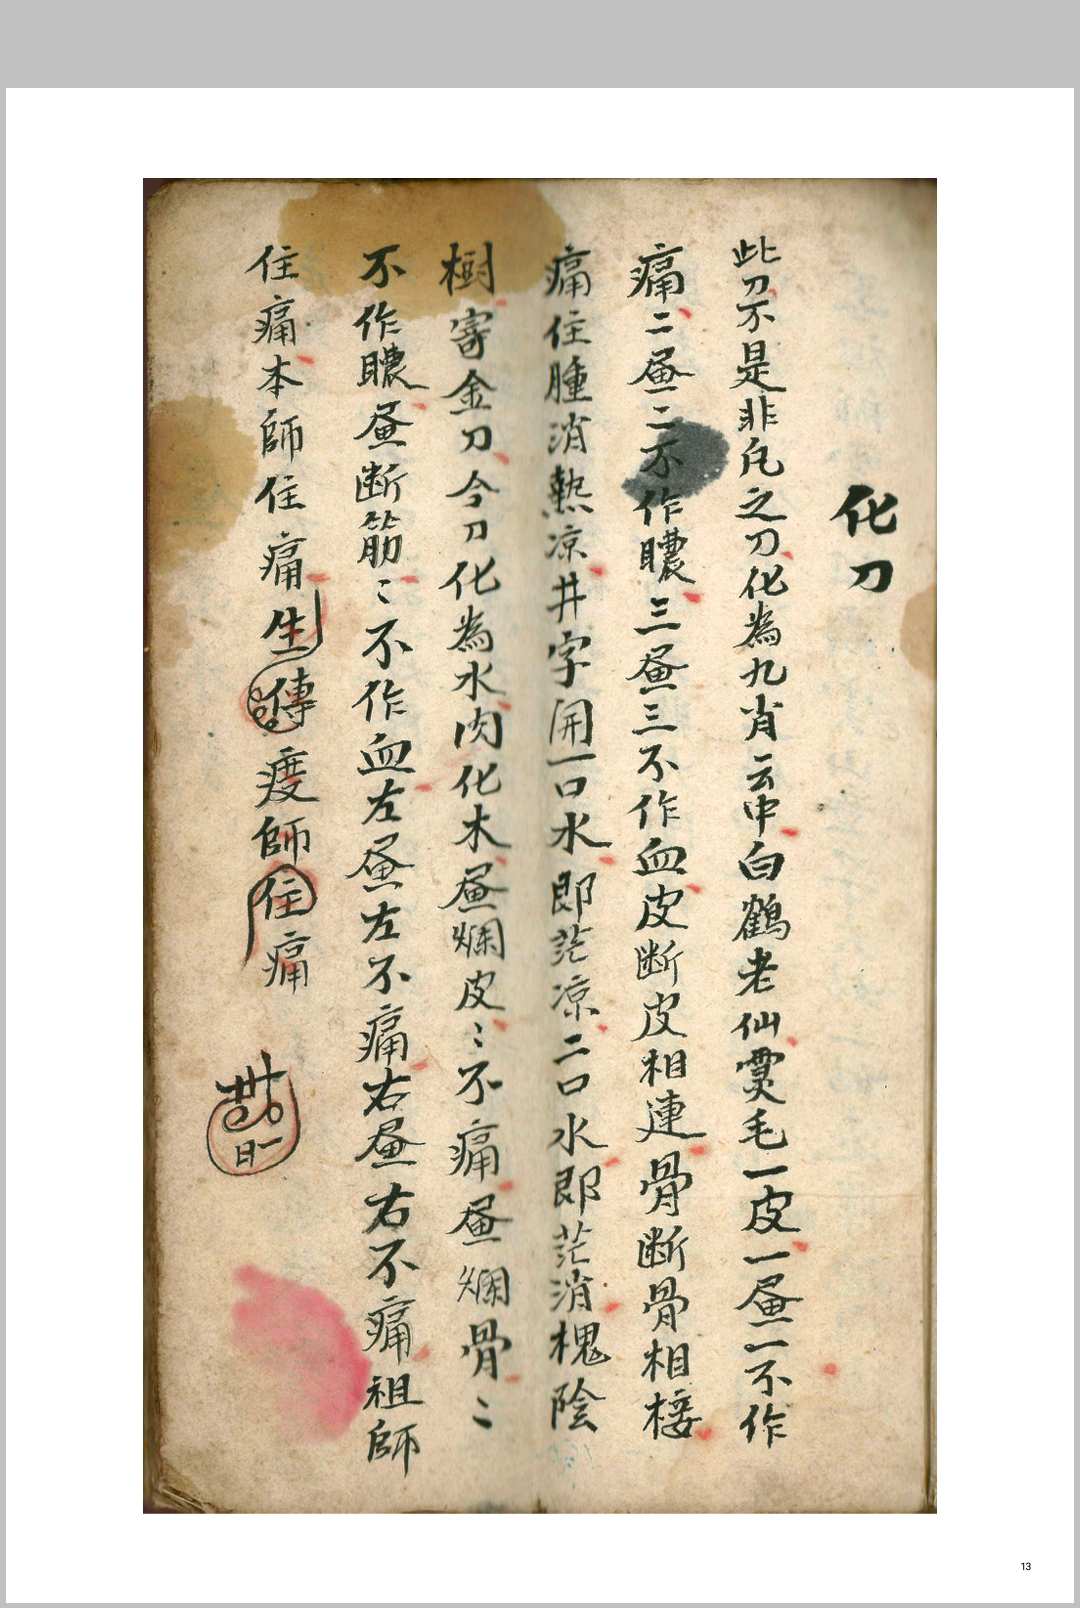 化刀
此刀不是非凡之刀化為九肖云中白鶴老仙霙毛一皮一昼一不作
痛二昼二不作膿三昼三不作血皮断皮相連骨断骨相接
痛住腫消熱凉井字開一口水即茫凉二口水即茫消槐陰
樹寄金刀今刀化為水肉化木昼爛皮〻不痛昼爛骨〻
不作膿昼断筋〻不作血左昼左不痛右昼右不痛祖師
住痛本師住痛生傳度師住痛
13